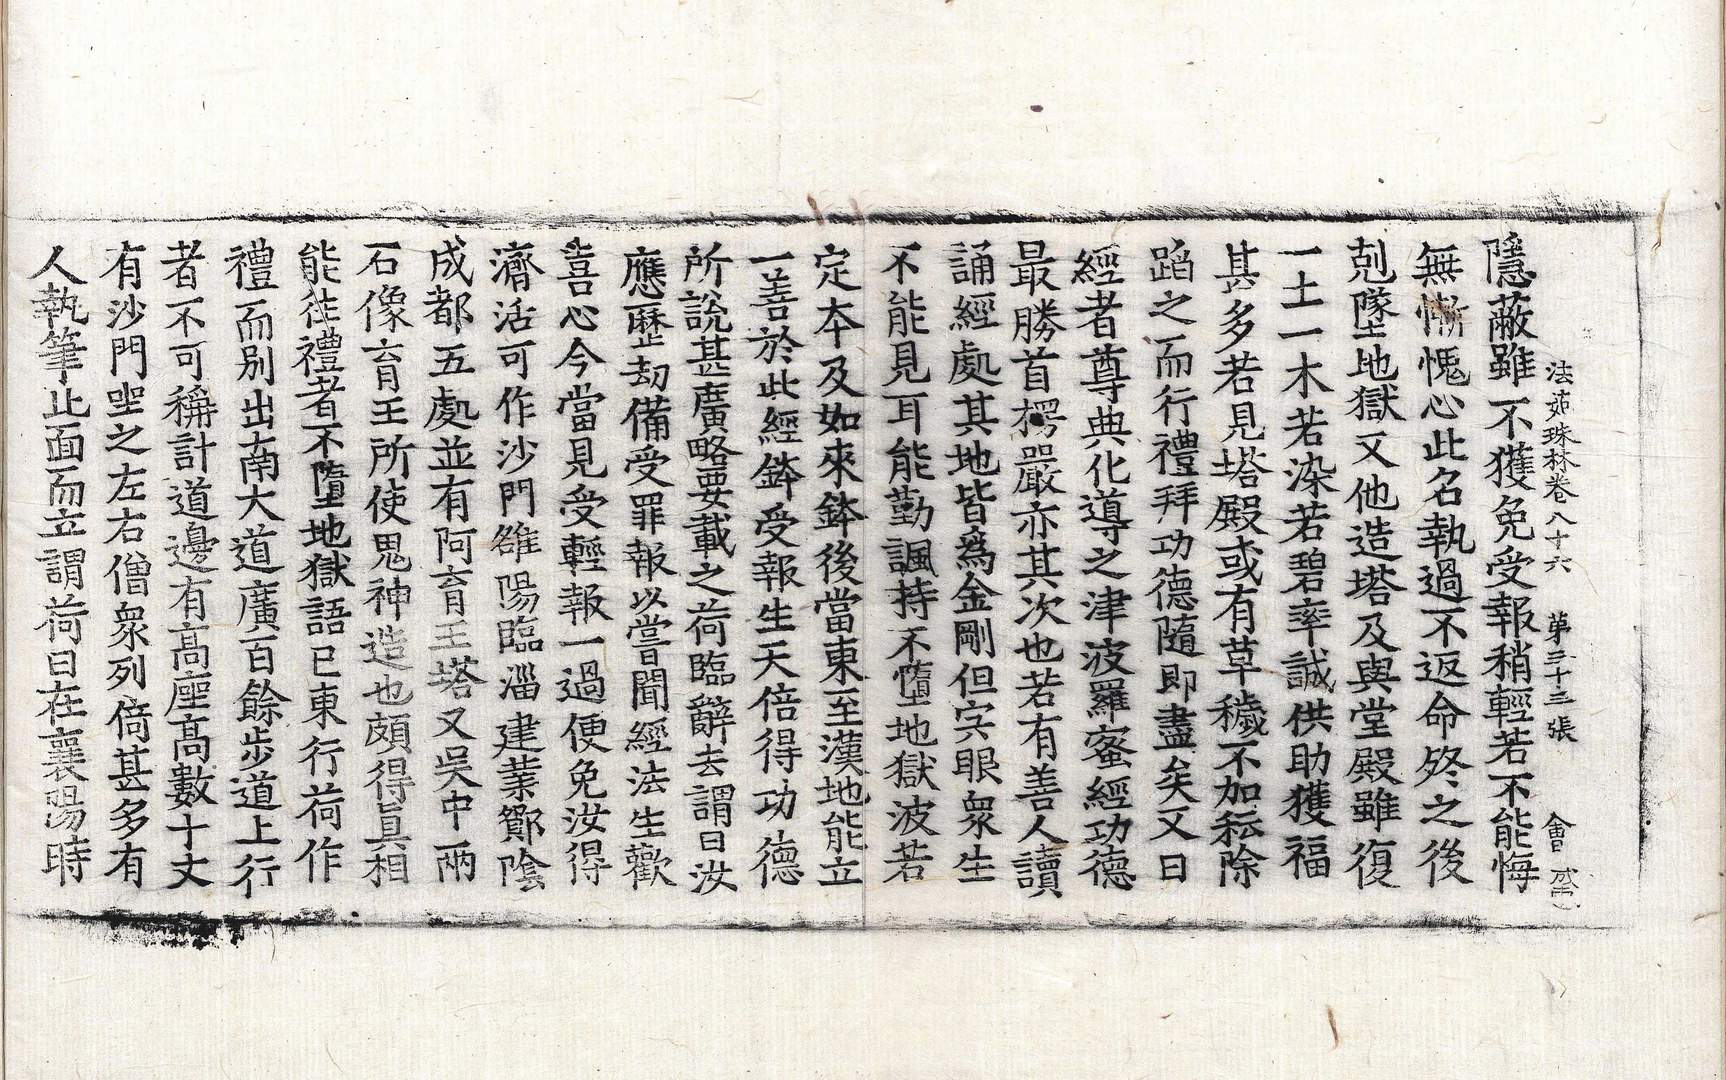 法苑珠林卷八十六 第三十三張 會
隱蔽雖不獲免受報稍輕若不能悔
無慚愧心此名執過不返命終之後
剋墜地獄又他造塔及與堂殿雖復
一土一木若染若碧率誠供助獲福
甚多若見塔殿或有草穢不加耘除
蹈之而行禮拜功德隨即盡矣又曰
經者尊典化導之津波羅蜜經功德
最勝首楞嚴亦其次也若有善人讀
誦經處其地皆爲金剛但宍眼衆生
不能見耳能勤諷持不墮地獄波若
定本及如來鉢後當東至漢地能立
一善於此經鉢受報生天倍得功德
所說甚廣略要載之荷臨辭去謂曰汝
應歷劫備受罪報以甞聞經法生歡
喜心今當見受輕報一過便免汝得
濟活可作沙門雒陽臨淄建業鄮陰
成都五處並有阿育王塔又吳中兩
石像育王所使鬼神造也頗得眞相
能往禮者不墮地獄語已東行荷作
禮而別出南大道廣百餘步道上行
者不可稱計道邊有高座高數十丈
有沙門坐之左右僧衆列倚甚多有
人執筆北面而立謂荷曰在襄陽時